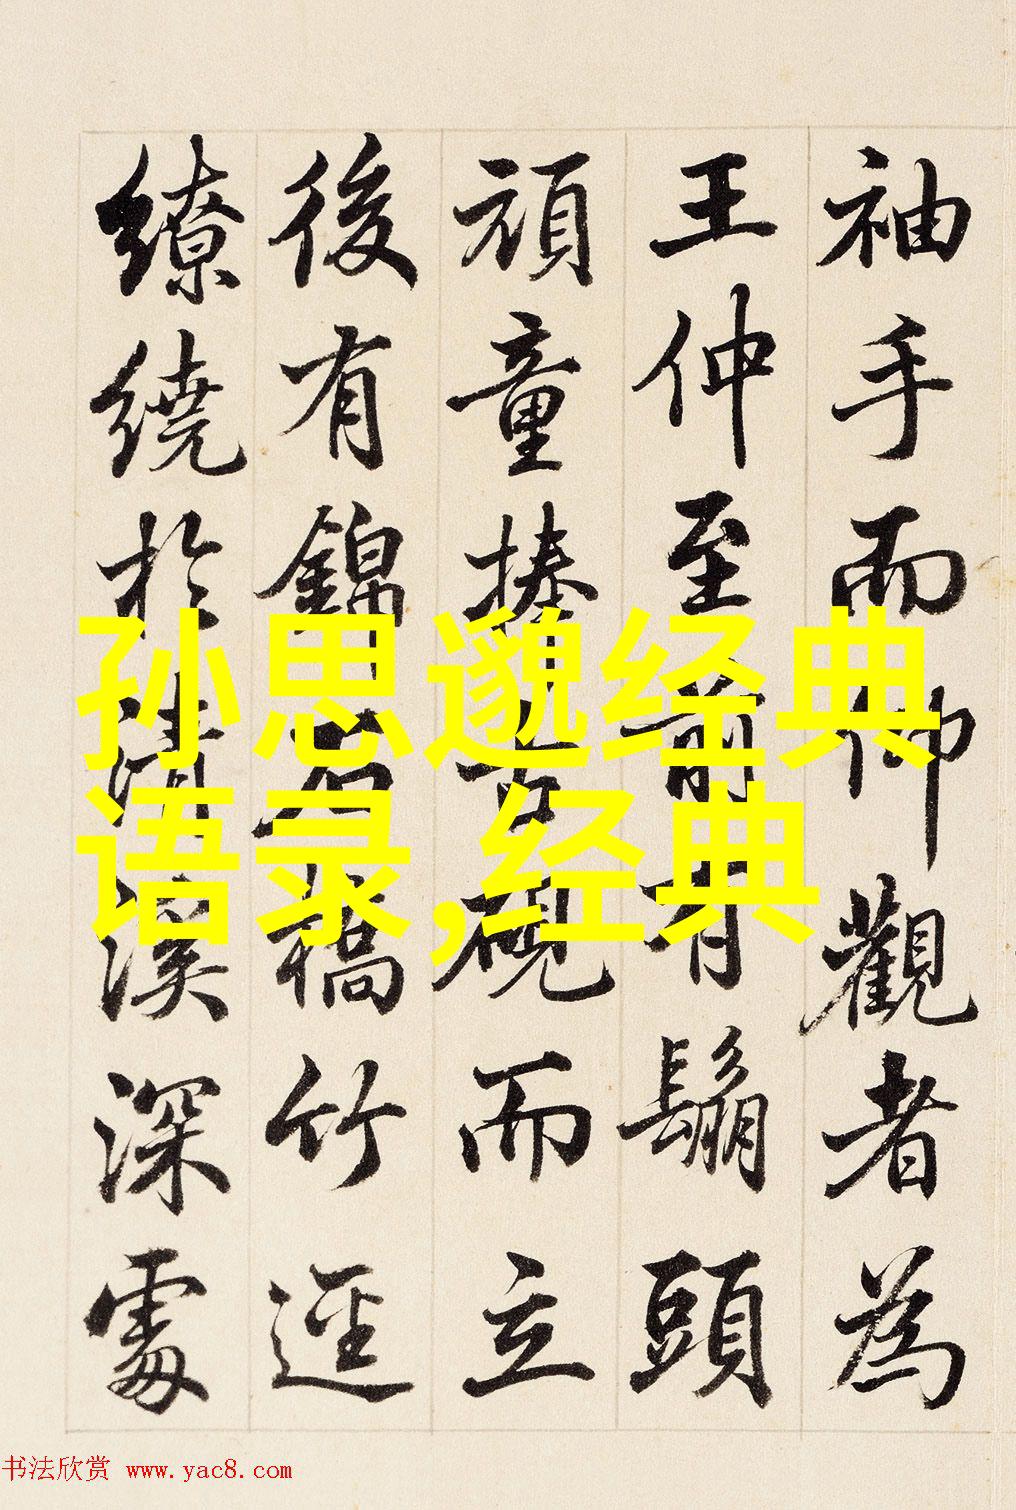 袖手而仰觀者為
王仲至前有鬅頭
頑童捧古硯而立
後有錦石橋竹逕
繚繞於清溪深處
孙思邈经典
语录,经典
书法欣赏 www.yac8.com